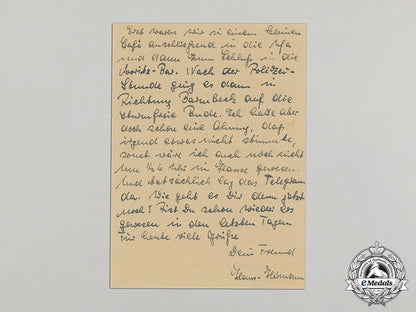 Erst waren wir in einem kleinen
Café anschließend in die Ufa
und dann zum Schluß in die
Bar. Nach der Polizei-
Stunde ging es dann in
Richtung Barmbeck auf die
sturmfreie Bude. Ich hatte aber
doch schon eine Ahnung, daß
irgend etwas nicht stimmte,
sonst wäre ich auch noch nicht
um ½ 6 Uhr in Hause gewesen.
Und tatsächlich lag das Telegramm
da. Wie geht es Dir denn jetzt
noch? Bist Du schon wieder los
gewesen in den letzten Tagen
Für heute viele Grüße
Dein Freund
Hans-Hermann
eMedals